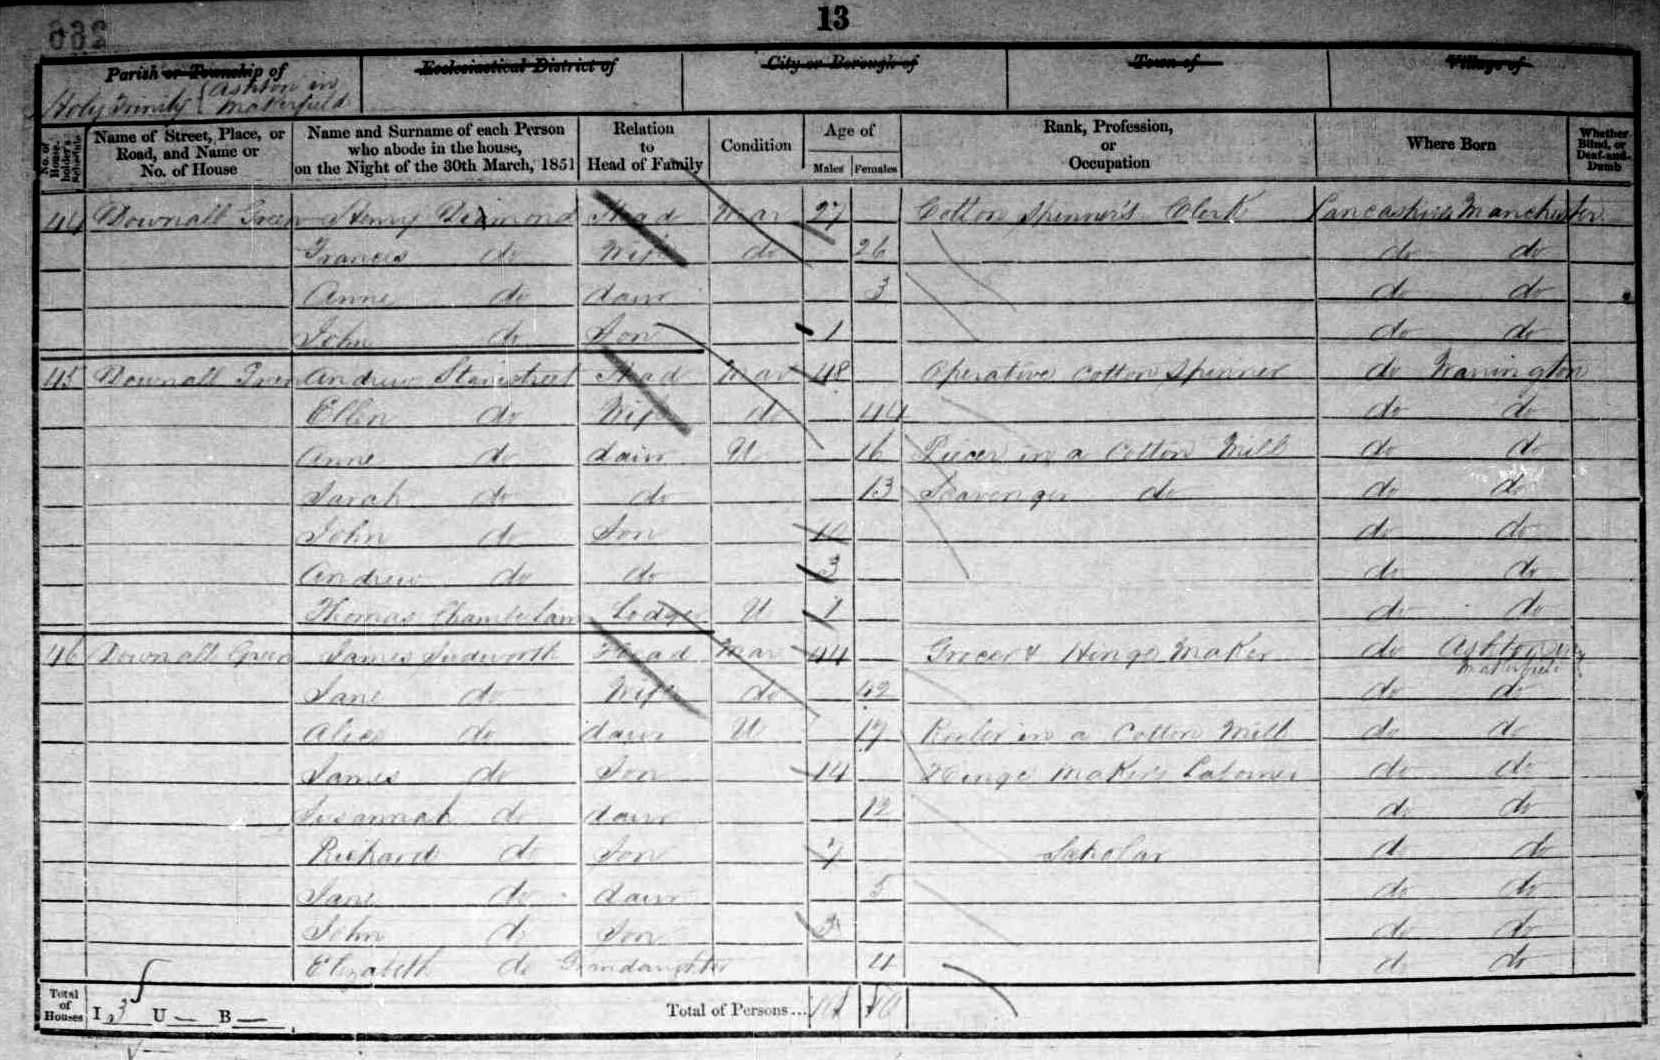 13
Parish or Township of
Ecclesiastical District of
City or Borough of
Town of
Village of
Holy Trinity { Ashton in Makerfield
No. of House-holder's Schedule
Name of Street, Place, or Road, and Name or No. of House
Name and Surname of each Person who abode in the house, on the Night of the 30th March, 1851
Relation to Head of Family
Condition
Age of
Males Females
Rank, Profession, or Occupation
Where Born
Whether Blind, or Deaf-and-Dumb
44 Downall Green Henry Diamond Head Mar 27 Cotton Spinner's Clerk Lancashire Manchester
Frances do Wife do 26 do do
Anne do daur 3 do do
John do Son 1 do do
45 Downall Green Andrew Stanistreet Head Mar 48 Operative Cotton Spinner do Warrington
Ellen do Wife do 44 do do
Anne do daur U 16 Piecer in a Cotton Mill do do
Sarah do do 13 Scavenger do do do
John do Son 10 do do
Andrew do do 3 do do
Thomas Chamberlain Lodger U 1 do do
46 Downall Green James Sudworth Head Mar 44 Grocer & Hinge Maker do Ashton in Makerfield
Jane do Wife do 42 do do
Alice do daur U 17 Reeler in a Cotton Mill do do
James do Son 14 Hinge Maker's Labourer do do
Susannah do daur 12 do do
Richard do Son 7 Scholar do do
Jane do daur 5 do do
John do Son 3 do do
Elizabeth do Grandaughter 4 do do
Total of Houses I 3 U — B —
Total of Persons... 10 10